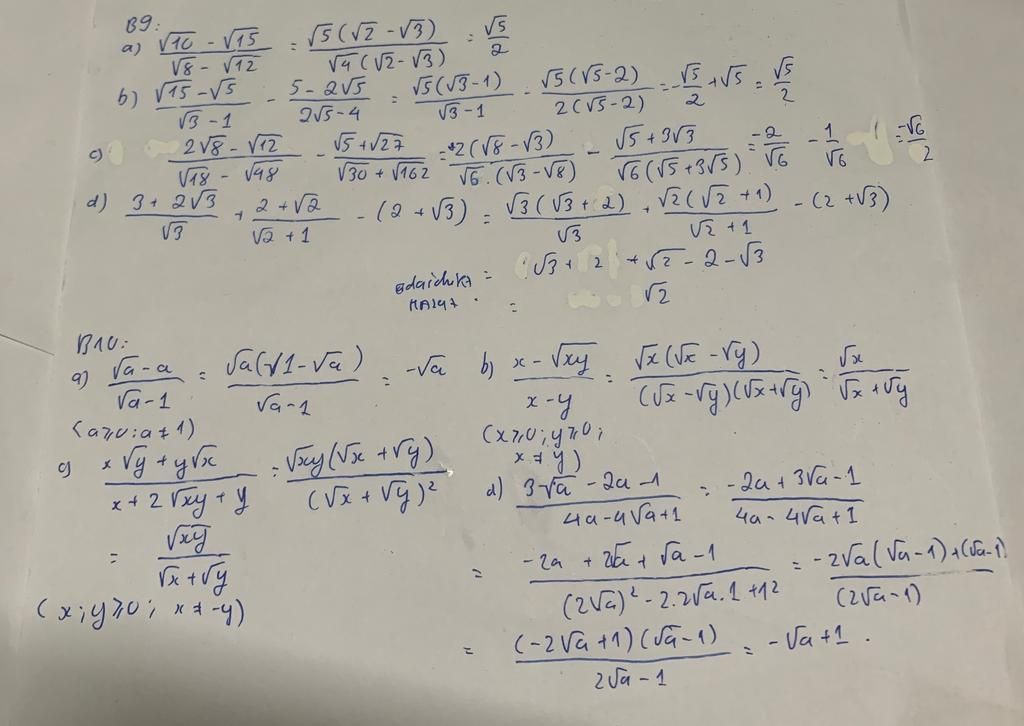 B9:
a) (√10 - √15)/(√8 - √12) = √5(√2 - √3)/√4(√2 - √3) = √5/2
b) (√15 - √5)/(√3 - 1) - (5 - 2√5)/(2√5 - 4) = √5(√3 - 1)/(√3 - 1) - √5(√5 - 2)/2(√5 - 2) = -√5/2 + √5 = √5/2
c) (2√8 - √12)/(√18 - √48) - (√5 + √27)/(√30 + √162) = 2(√8 - √3)/√6.(√3 - √8) - (√5 + 3√3)/√6(√5 + 3√5) = -2/√6 - 1/√6 = -√6/2
d) (3 + 2√3)/√3 + (2 + √2)/(√2 + 1) - (2 + √3) = √3(√3 + 2)/√3 + √2(√2 + 1)/(√2 + 1) - (2 + √3)
= √3 + 2 + √2 - 2 - √3
= √2
B10:
a) (√a - a)/(√a - 1) = √a(√1 - √a)/(√a - 1) = -√a
(a ≥ 0; a ≠ 1)
b) (x - √xy)/(x - y) = √x(√x - √y)/(√x - √y)(√x + √y) = √x/(√x + √y)
(x ≥ 0; y ≥ 0;
x ≠ y)
c) (x√y + y√x)/(x + 2√xy + y) = √xy(√x + √y)/(√x + √y)²
= √xy/(√x + √y)
(x; y ≥ 0; x ≠ -y)
d) (3√a - 2a - 1)/(4a - 4√a + 1) = (-2a + 3√a - 1)/(4a - 4√a + 1)
= (-2a + 2√a + √a - 1)/((2√a)² - 2.2√a.1 + 1²) = (-2√a(√a - 1) + (√a - 1))/(2√a - 1)
= (-2√a + 1)(√a - 1)/(2√a - 1) = -√a + 1.